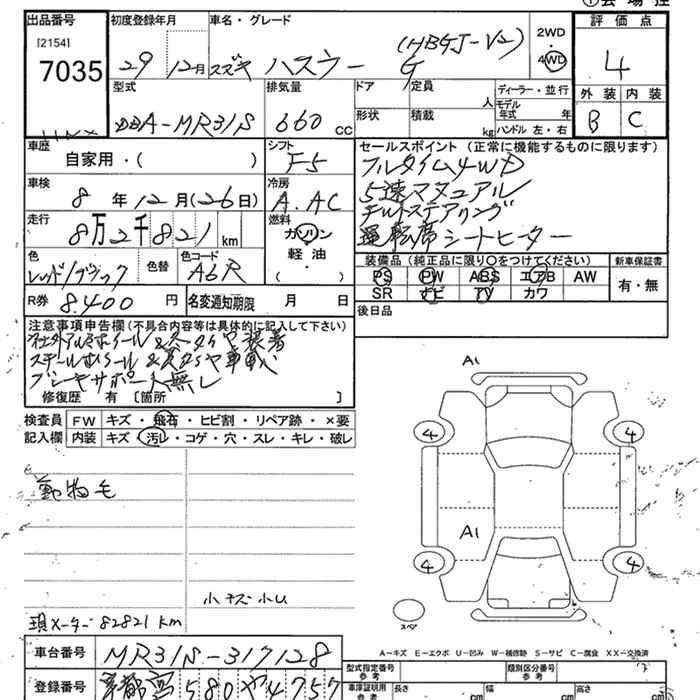 出品番号
[2154]
7035
初度登録年月
29 12月
車名・グレード
スズキ ハスラー G
(HBGJ-V2)
2WD
4WD
評価点
4
外装 内装
B C
型式
DBA-MR31S
排気量
660 cc
ドア 定員 人
形状 積載 kg
ディーラー・並行
モデル年式 年
ハンドル 左・右
車歴
自家用・( )
シフト
F5
セールスポイント (正常に機能するものに限ります)
フルタイム4WD
5速マニュアル
チルトステアリング
運転席シートヒーター
車検
8年12月(26日)
冷房
A.AC
走行
8万2千821 km
燃料
ガソリン
・
軽油
( )
色
レッド/ブラック
色替
色コード
A6R
装備品 (純正品に限り○をつけてください)
PS PW ABS エアB AW
SR ナビ TV カワ
新車保証書
有・無
R券 8.400 円
名変通知期限 月 日
後日品
注意事項申告欄(不具合内容等は具体的に記入して下さい)
社外アルミホイール&冬タイヤ装着
スチールホイール&夏タイヤ車載
ブレーキサポート無し
修復歴 有 〔箇所 〕
検査員 FW キズ・飛石・ヒビ割・リペア跡・×要
記入欄 内装 キズ・汚レ・コゲ・穴・スレ・キレ・破レ
動物毛
小キズ小U
現メーター 82821km
A1
4 4
A1
4 4
スペア
A－キズ E－エクボ U－凹み W－補修跡 S－サビ C－腐食 XX－交換済
車台番号 MR31S-317128
登録番号 京都 580 や 4757
型式指定番号 参考
類別区分番号 参考
車庫証明用 参考 長さ cm 幅 cm 高さ cm